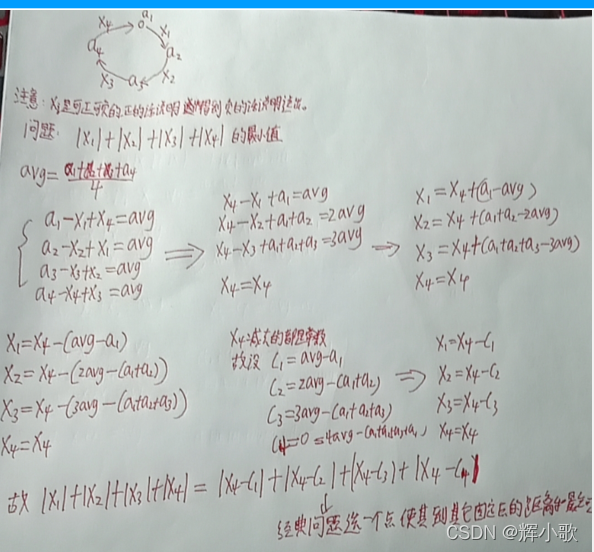 a₁
x₄
x₁
a₄
a₂
x₃
a₃
x₂
注意: x₁是可正可负的
问题: |x₁|+|x₂|+|x₃|+|x₄| 的最小值
avg=(a₁+a₂+a₃+a₄)/4
a₁-x₁+x₄=avg
a₂-x₂+x₁=avg
a₃-x₃+x₂=avg
a₄-x₄+x₃=avg
⇒
x₄-x₁+a₁=avg
x₄-x₂+a₁+a₂=2avg
x₄-x₃+a₁+a₂+a₃=3avg
x₄=x₄
→
x₁=x₄+(a₁-avg)
x₂=x₄+(a₁+a₂-2avg)
x₃=x₄+(a₁+a₂+a₃-3avg)
x₄=x₄
x₁=x₄-(avg-a₁)
x₂=x₄-(2avg-(a₁+a₂))
x₃=x₄-(3avg-(a₁+a₂+a₃))
x₄=x₄
x₄减去的都是常数
故设 C₁=avg-a₁
C₂=2avg-(a₁+a₂)
C₃=3avg-(a₁+a₂+a₃)
C₄=0=4avg-(a₁+a₂+a₃+a₄)
⇒
x₁=x₄-C₁
x₂=x₄-C₂
x₃=x₄-C₃
x₄=x₄
故 |x₁|+|x₂|+|x₃|+|x₄| = |x₄-C₁|+|x₄-C₂|+|x₄-C₃|+|x₄-C₄|
↓
经典问题选一个点 使其到其它固定点的距离和最
CSDN @辉小歌